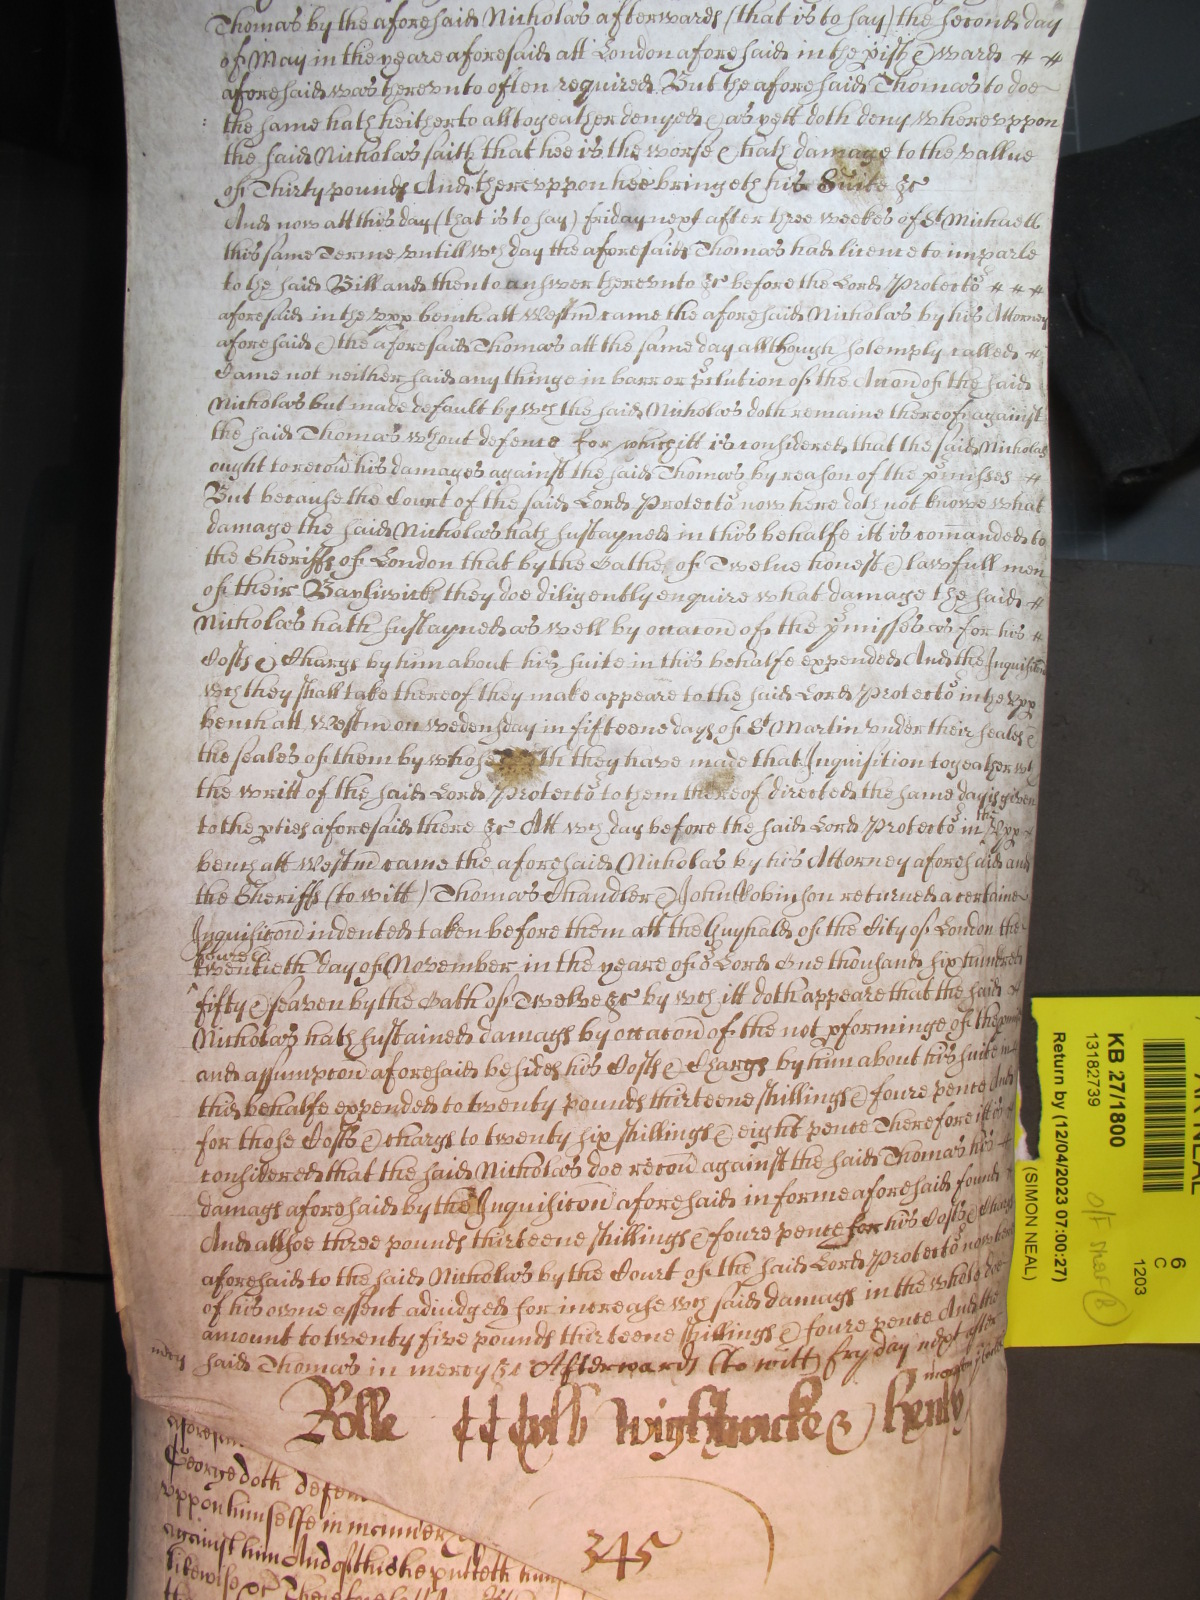 Thomas by the aforesaid Nicholas afterwards (that is to say) the second day
of May in the yeare aforesaid att London aforesaid in the pish & ward
aforesaid was therevnto often required But the aforesaid Thomas to doe
the same hath heitherto alltogeather denyed & as yett doth deny wherevppon
the said Nicholas saith that hee is the worse & hath damage to the vallue
of Thirty pounds And therevppon hee bringeth his Suite &c
And now att this day (that is to say) friday next after three weekes of St Michaell
this same Terme vntill wch day the aforesaid Thomas had licence to imparle
to the said Bill and then to answer therevnto &c before the Lord Protector
aforesaid in the vpp bench att Westm came the aforesaid Nicholas by his Attorney
aforesaid & the aforesaid Thomas att the same day allthough solemply called
Came not neither said any thinge in barr or pclution of the Acon of the said
Nicholas but made default by wch the said Nicholas doth remaine thereof against
the said Thomas wthout defence for which itt is considered that the said Nicholas
ought to recou his damages against the said Thomas by reason of the pmisses
But because the Court of the said Lord Protector now here doth not knowe what
damage the said Nicholas hath sustayned in this behalfe itt is comanded to
the Sheriffs of London that by the Oathe of Twelue honest & lawfull men
of their Bayliwick they doe diligently enquire what damage the said
Nicholas hath sustayned as well by occacon of the pmisses as for his
Costs & Chargs by him about his suite in this behalfe expended And the Inquisicon
wch they shall take thereof they make appeare to the said Lord Protector in the vpp
bench att Westm on wedensday in fifteene dayes of St Martin vnder their seales &
the seales of them by whose they have made that Inquisition togeather wth
the writt of the said Lord Protector to them thereof directed the same day is given
to the pties aforesaid there &c Att wch day before the said Lord Protector in the vpp
bench att Westm came the aforesaid Nicholas by his Attorney aforesaid and
the Sheriffs (to witt) Thomas Chandler & John Robinson returned a certaine
Inquisicon indented taken before them att the Guyhald of the City of London the
twentieth day of November in the yeare of or Lord One thousand six hundred
fifty & seaven by the Oath of Twelve &c by wch itt doth appeare that the said
Nicholas hath sustained damags by occacon of the not pforminge of the
and assumpcon aforesaid besides his Costs & Chargs by him about his suite in
this behalfe expended to twenty pounds thirteene shillings & foure pence And
for those Costs & chargs to twenty six shillings & eight pence Therefore itt is
considered that the said Nicholas doe recou against the said Thomas his
damags aforesaid by the Inquisicon aforesaid in forme aforesaid found
And allsoe three pounds thirteene shillings & foure pence for his Costs & Chargs
aforesaid to the said Nicholas by the Court of the said Lord Protector now here
of his owne assent adiudged for increase wch said damags in the whole doe
amount to twenty five pounds thirteene shillings & foure pence And the
mercy said Thomas in mercy &c Afterwards (to witt) fryday next after
Rolle Wightwicke & Henly
345
George doth defend
vppon himselfe in manner &
against him And of this he putteth him
likewise &c Therefore
KB 27/1800
13182739
Return by (12/04/2023 07:00:27)
(SIMON NEAL)
6
C
1203